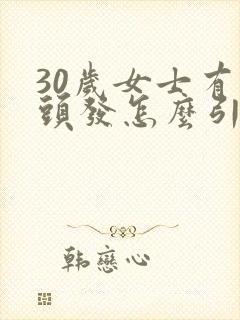 30歲女士有
頭發怎麼引
韓戀心